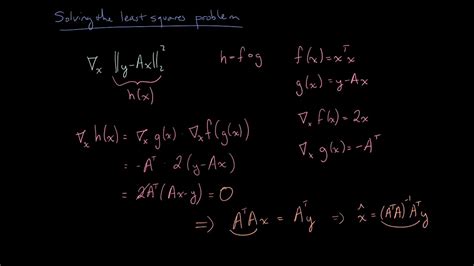 Solving the least squares problem
∇ₓ ‖y-Ax‖₂² h=f∘g f(x)=xᵀx
h(x) g(x)=y-Ax
∇ₓ f(x)=2x
∇ₓ h(x)= ∇ₓ g(x) ∇ₓ f(g(x)) ∇ₓ g(x)=-Aᵀ
= -Aᵀ 2(y-Ax)
= 2Aᵀ(Ax-y) = 0
⇒ AᵀAx = Aᵀy ⇒ x̂=(AᵀA)⁻¹Aᵀy